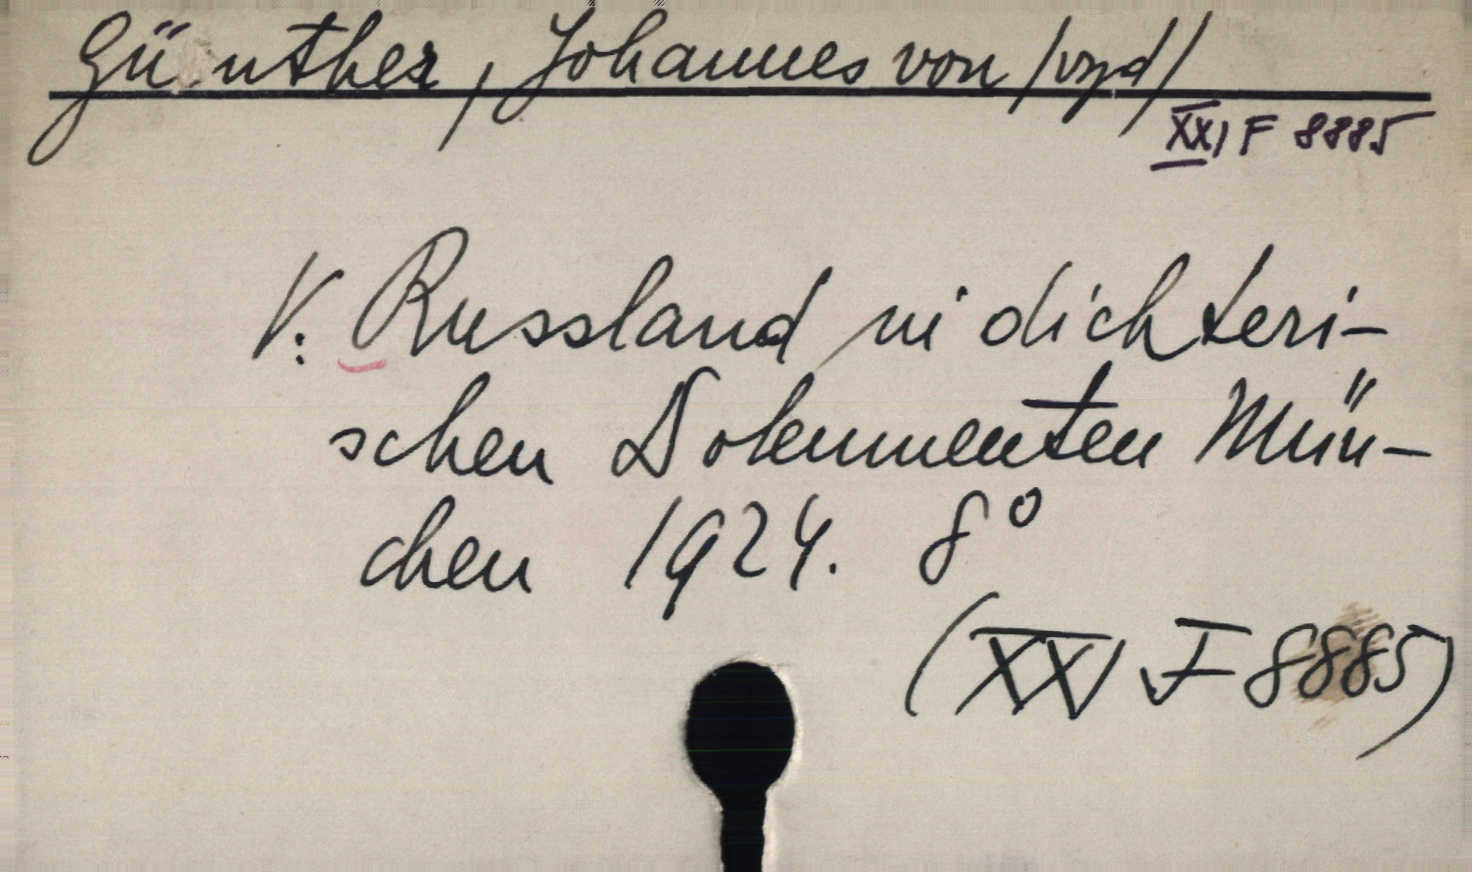 Günther, Johannes von /vyd/
XXI F 8885
V: Russland in dichteri-
schen Dokumenten Mün-
chen 1924. 8°
(XXI F 8885)